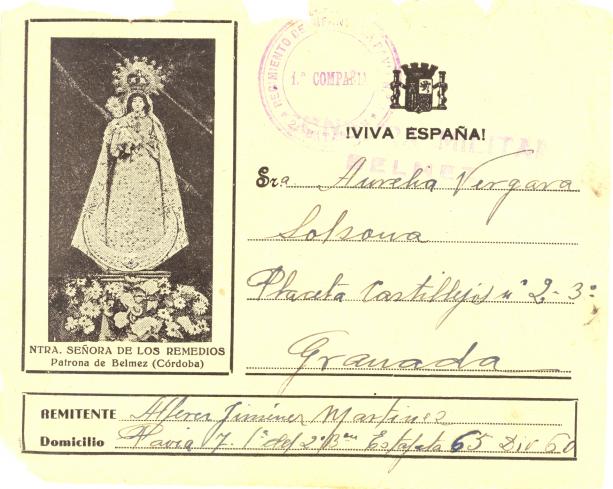 REGIMIENTO DE INFANTERIA
1.ª COMPAÑIA
¡VIVA ESPAÑA!
CENSURA MILITAR
BELMEZ
Sra Aurelia Vergara
Solsona
Placeta Castillejos nº 2-3º
Granada
NTRA. SEÑORA DE LOS REMEDIOS
Patrona de Belmez (Córdoba)
REMITENTE Jiménez Martínez
Domicilio Pavia 7. 1ª del 2º Bon Estafeta 65 Div 60